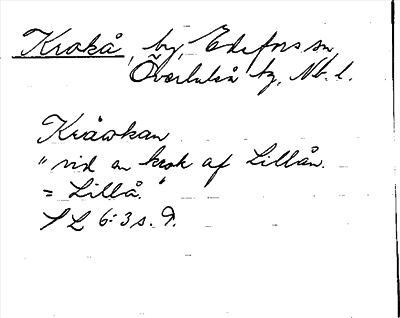 Krokå, by, Edefors sn,
Överluleå tg, Nb. l.
Kråokan
"vid en krok af Lillån
= Lillå."
SL 6:3 s. 9.